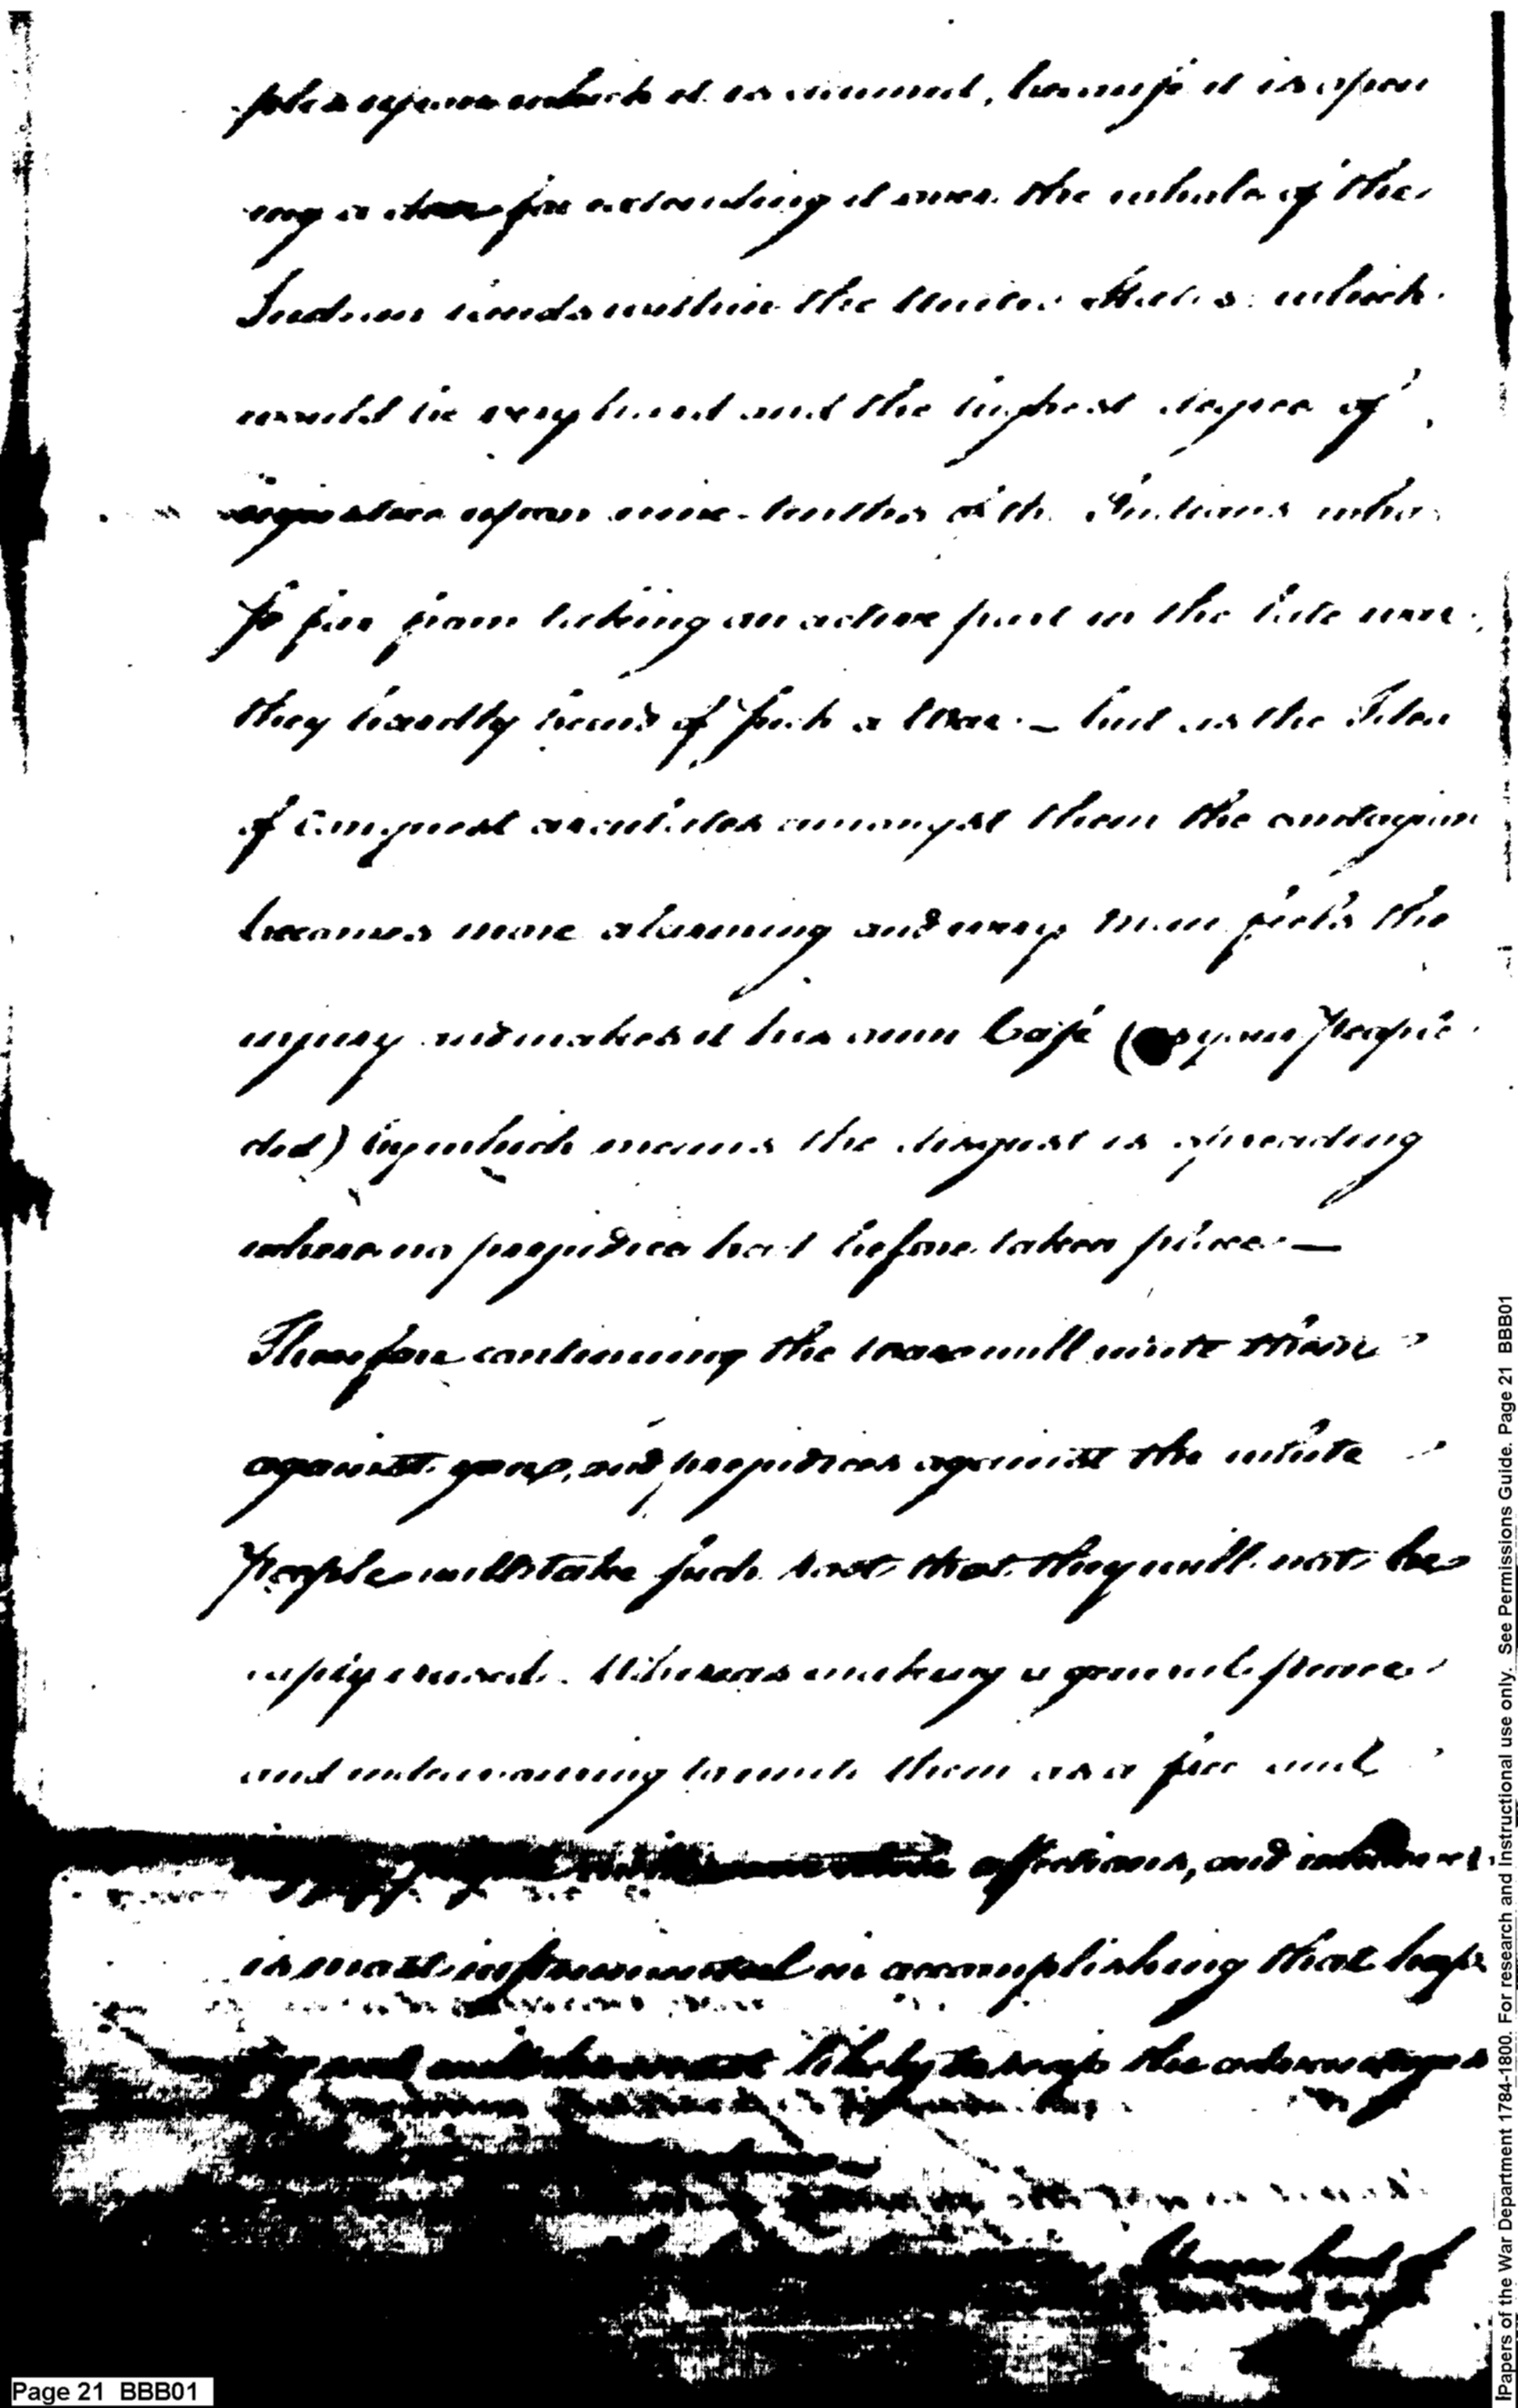 ples upon which it is criminal, because it is open
ing a door for extending it over the whole of the
Indian lands within the United States which
would be very hard and the highest degree of
injustice upon nine-tenths of the Indians who
so far from taking an active part in the late war
they hardly heard of such a War. — but as the Idea
of Conquest circulates amongst them the contagion
becomes more alarming and every man feels the
injury and makes it his own Case (as your People
did) by which means the disgust is spreading
where no prejudice had before taken place —
Therefore continuing the war will unite them
against you, and prejudices against the white
People will take such root that they will not be
easily erased. Whereas making a general peace
and endeavouring to unite them as a free and
affections, and whoever
is most instrumental in accomplishing that hap
likely to reap the advantages
Page 21 BBB01
Papers of the War Department 1784-1800. For research and Instructional use only. See Permissions Guide. Page 21 BBB01